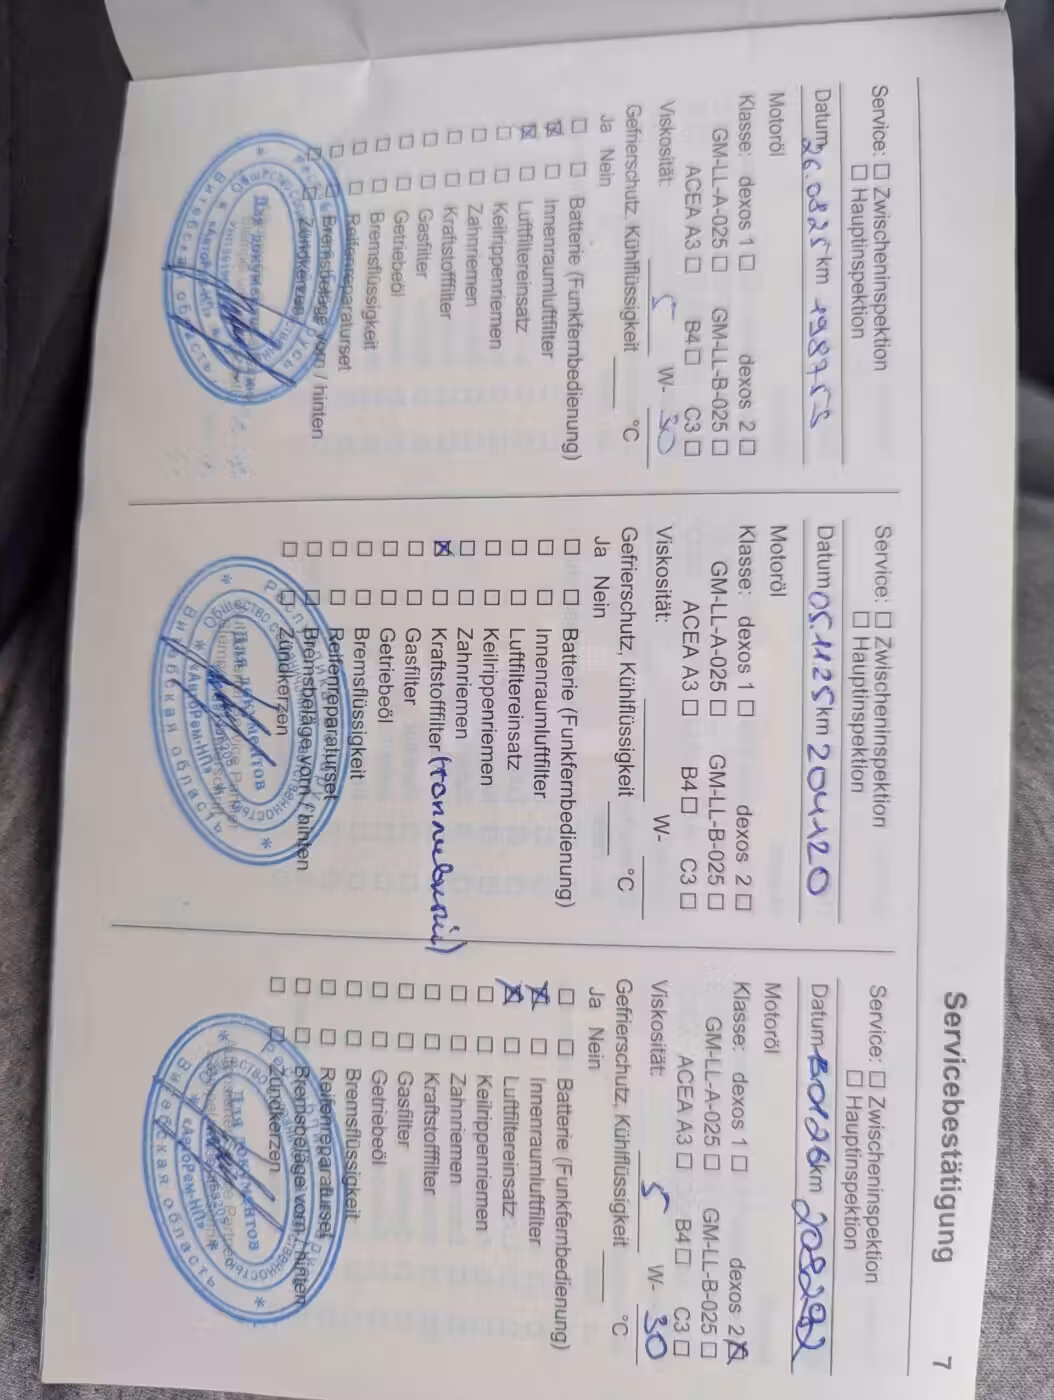 Servicebestätigung 7
Service: ☐ Zwischeninspektion
☐ Hauptinspektion
Datum 26.08.25 km 198753
Motoröl
Klasse: dexos 1 ☐ dexos 2 ☐
GM-LL-A-025 ☐ GM-LL-B-025 ☐
ACEA A3 ☐ B4 ☐ C3 ☐
Viskosität: 5 W- 30
Gefrierschutz, Kühlflüssigkeit °C
Ja Nein
☐ ☐ Batterie (Funkfernbedienung)
☒ ☐ Innenraumluftfilter
☒ ☐ Luftfiltereinsatz
☐ ☐ Keilrippenriemen
☐ ☐ Zahnriemen
☐ ☐ Kraftstofffilter
☐ ☐ Gasfilter
☐ ☐ Getriebeöl
☐ ☐ Bremsflüssigkeit
☐ ☐ Reifenreparaturset
☐ ☐ Bremsbeläge vorn / hinten
☐ ☐ Zündkerzen
Для документов
Service: ☐ Zwischeninspektion
☐ Hauptinspektion
Datum 05.11.25 km 204120
Motoröl
Klasse: dexos 1 ☐ dexos 2 ☐
GM-LL-A-025 ☐ GM-LL-B-025 ☐
ACEA A3 ☐ B4 ☐ C3 ☐
Viskosität: W-
Gefrierschutz, Kühlflüssigkeit °C
Ja Nein
☐ ☐ Batterie (Funkfernbedienung)
☐ ☐ Innenraumluftfilter
☐ ☐ Luftfiltereinsatz
☐ ☐ Keilrippenriemen
☐ ☐ Zahnriemen
☒ ☐ Kraftstofffilter (топливный)
☐ ☐ Gasfilter
☐ ☐ Getriebeöl
☐ ☐ Bremsflüssigkeit
☐ ☐ Reifenreparaturset
☐ ☐ Bremsbeläge vorn / hinten
☐ ☐ Zündkerzen
Для документов
«АвтоРем-НП»
Витебская область
Service: ☐ Zwischeninspektion
☐ Hauptinspektion
Datum km 208292
Motoröl
Klasse: dexos 1 ☐ dexos 2 ☒
GM-LL-A-025 ☐ GM-LL-B-025 ☐
ACEA A3 ☐ B4 ☐ C3 ☐
Viskosität: 5 W- 30
Gefrierschutz, Kühlflüssigkeit °C
Ja Nein
☐ ☐ Batterie (Funkfernbedienung)
☒ ☐ Innenraumluftfilter
☒ ☐ Luftfiltereinsatz
☐ ☐ Keilrippenriemen
☐ ☐ Zahnriemen
☐ ☐ Kraftstofffilter
☐ ☐ Gasfilter
☐ ☐ Getriebeöl
☐ ☐ Bremsflüssigkeit
☐ ☐ Reifenreparaturset
☐ ☐ Bremsbeläge vorn / hinten
☐ ☐ Zündkerzen
Для документов
«АвтоРем-НП»
Витебская область